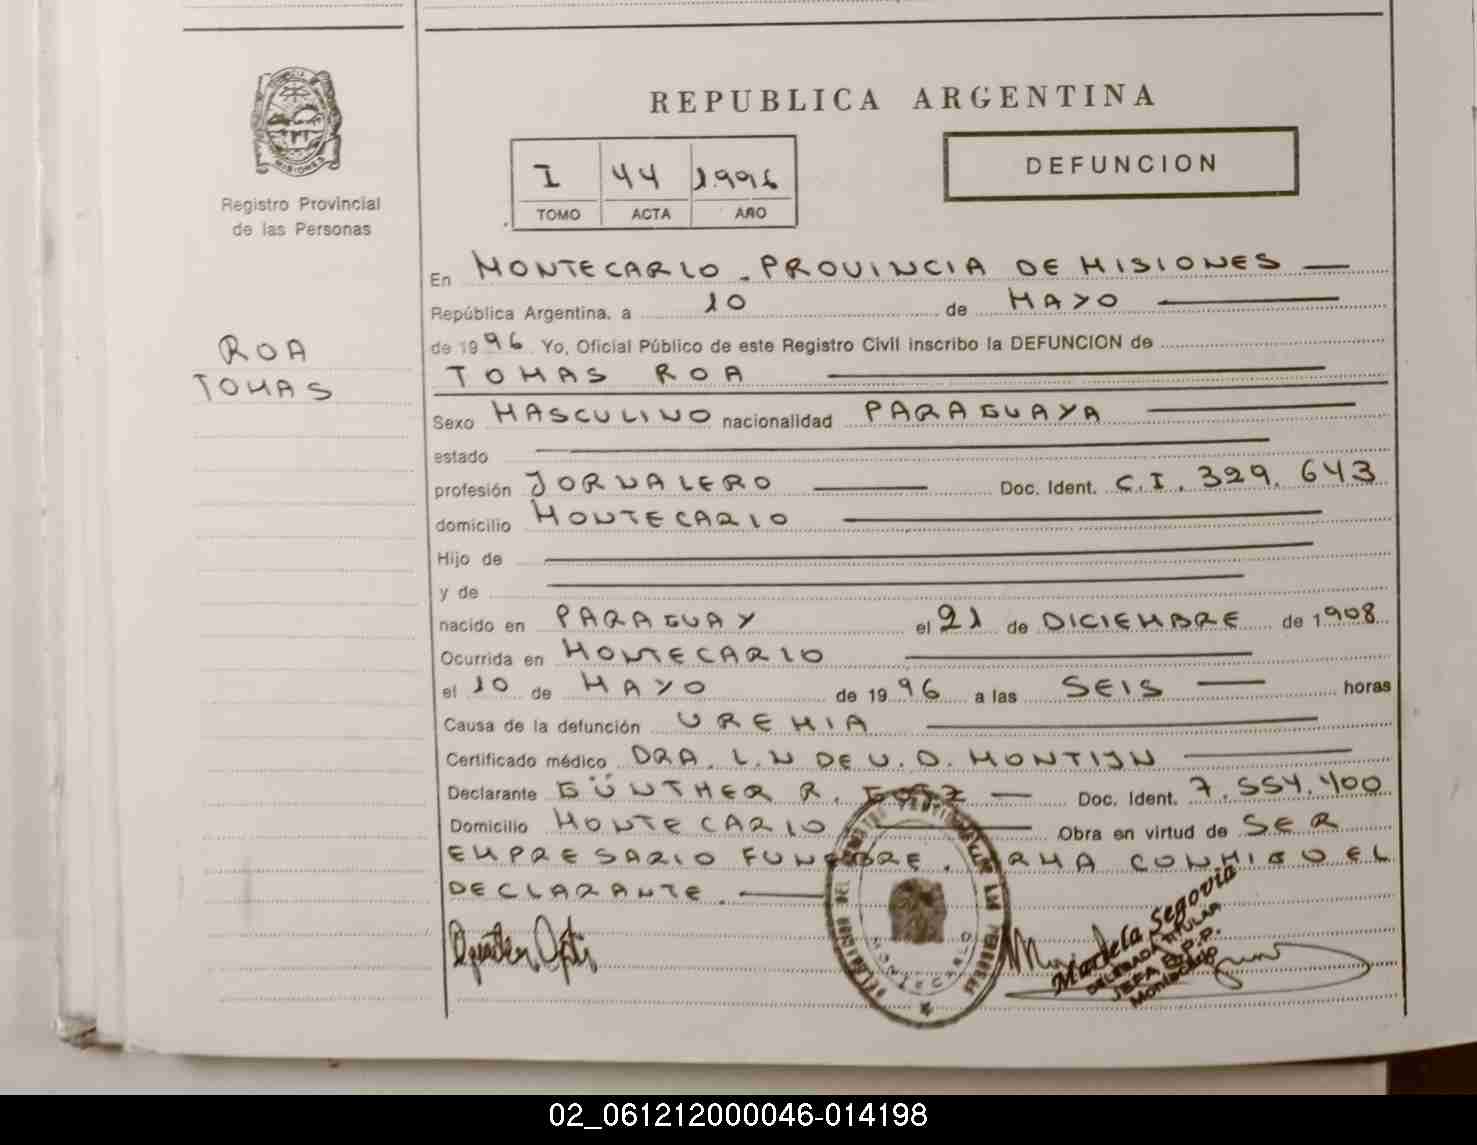 PROVINCIA DE
MISIONES
Registro Provincial
de las Personas
ROA
TOMAS
REPUBLICA ARGENTINA
I 44 1.996
TOMO ACTA AÑO
DEFUNCION
En MONTECARLO - PROVINCIA DE MISIONES
República Argentina, a 10 de MAYO
de 1996 Yo, Oficial Público de este Registro Civil inscribo la DEFUNCION de
TOMAS ROA
Sexo MASCULINO nacionalidad PARAGUAYA
estado
profesión JORNALERO Doc. Ident. C.I. 329.643
domicilio MONTECARLO
Hijo de
y de
nacido en PARAGUAY el 21 de DICIEMBRE de 1908
Ocurrida en MONTECARLO
el 10 de MAYO de 1996 a las SEIS horas
Causa de la defunción UREMIA
Certificado médico DRA. L.N DE V.D. MONTIJN
Declarante GÜNTHER R. Doc. Ident. 7.554.400
Domicilio MONTECARLO Obra en virtud de SER
EMPRESARIO FUNEBRE. FIRMA CONMIGO EL
DECLARANTE.
MONTECARLO
Mardela Segovia
DELEGADA TITULAR
JEFA R.P.P.
Montecarlo
02_061212000046-014198